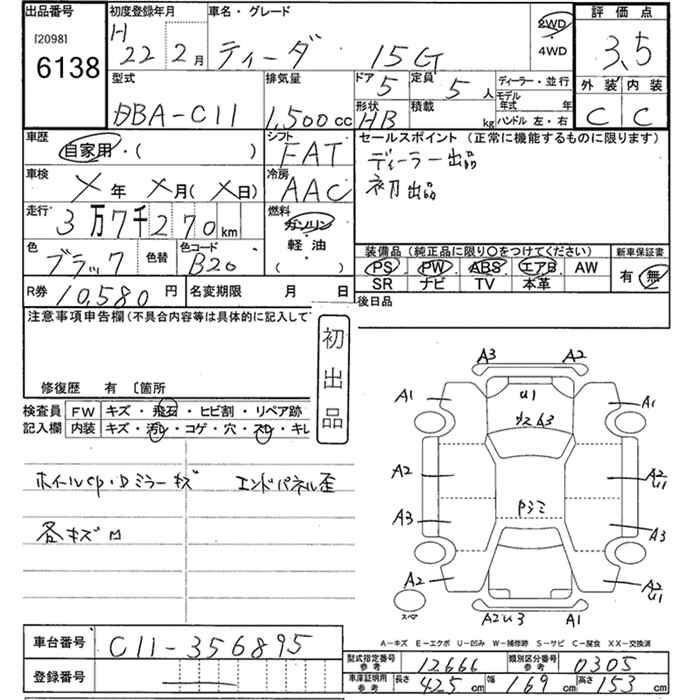 出品番号
[2098]
6138
初度登録年月
H 22 2月
車名・グレード
ティーダ 15G
2WD
4WD
評価点
3,5
外装 内装
C C
型式
DBA-C11
排気量
1,500cc
ドア 5
定員 5人
形状 HB
積載 kg
ディーラー・並行
モデル年式 年
ハンドル 左・右
車歴
自家用・( )
シフト
FAT
セールスポイント(正常に機能するものに限ります)
ディーラー出品
初出品
車検
X年 X月(X日)
冷房
AAC
走行
3万7千270km
燃料
ガソリン
軽油
( )
色
ブラック
色替
色コード
B20
装備品(純正品に限り○をつけてください)
PS PW ABS エアB AW
SR ナビ TV 本革
新車保証書
有 無
R券 10,580円
名変期限 月 日
後日品
注意事項申告欄(不具合内容等は具体的に記入して
初出品
修復歴 有 〔箇所
検査員記入欄
FW キズ・飛石・ヒビ割・リペア跡
内装 キズ・汚レ・コゲ・穴・スレ・キレ
ホイールcp・Dミラーキズ エンドパネル歪
各キズ
A3 A2
A1 U1 A1
リスカA3
A2 A2 U1
Pシミ
A3 A3
A2 A2 U1
スペア
A2U3 A1
A-キズ E-エクボ U-凹み W-補修跡 S-サビ C-腐食 XX-交換済
車台番号 C11-356895
登録番号
型式指定番号参考 12666
類別区分番号参考 0305
車庫証明用参考 長さ 425cm 幅 169cm 高さ 153cm